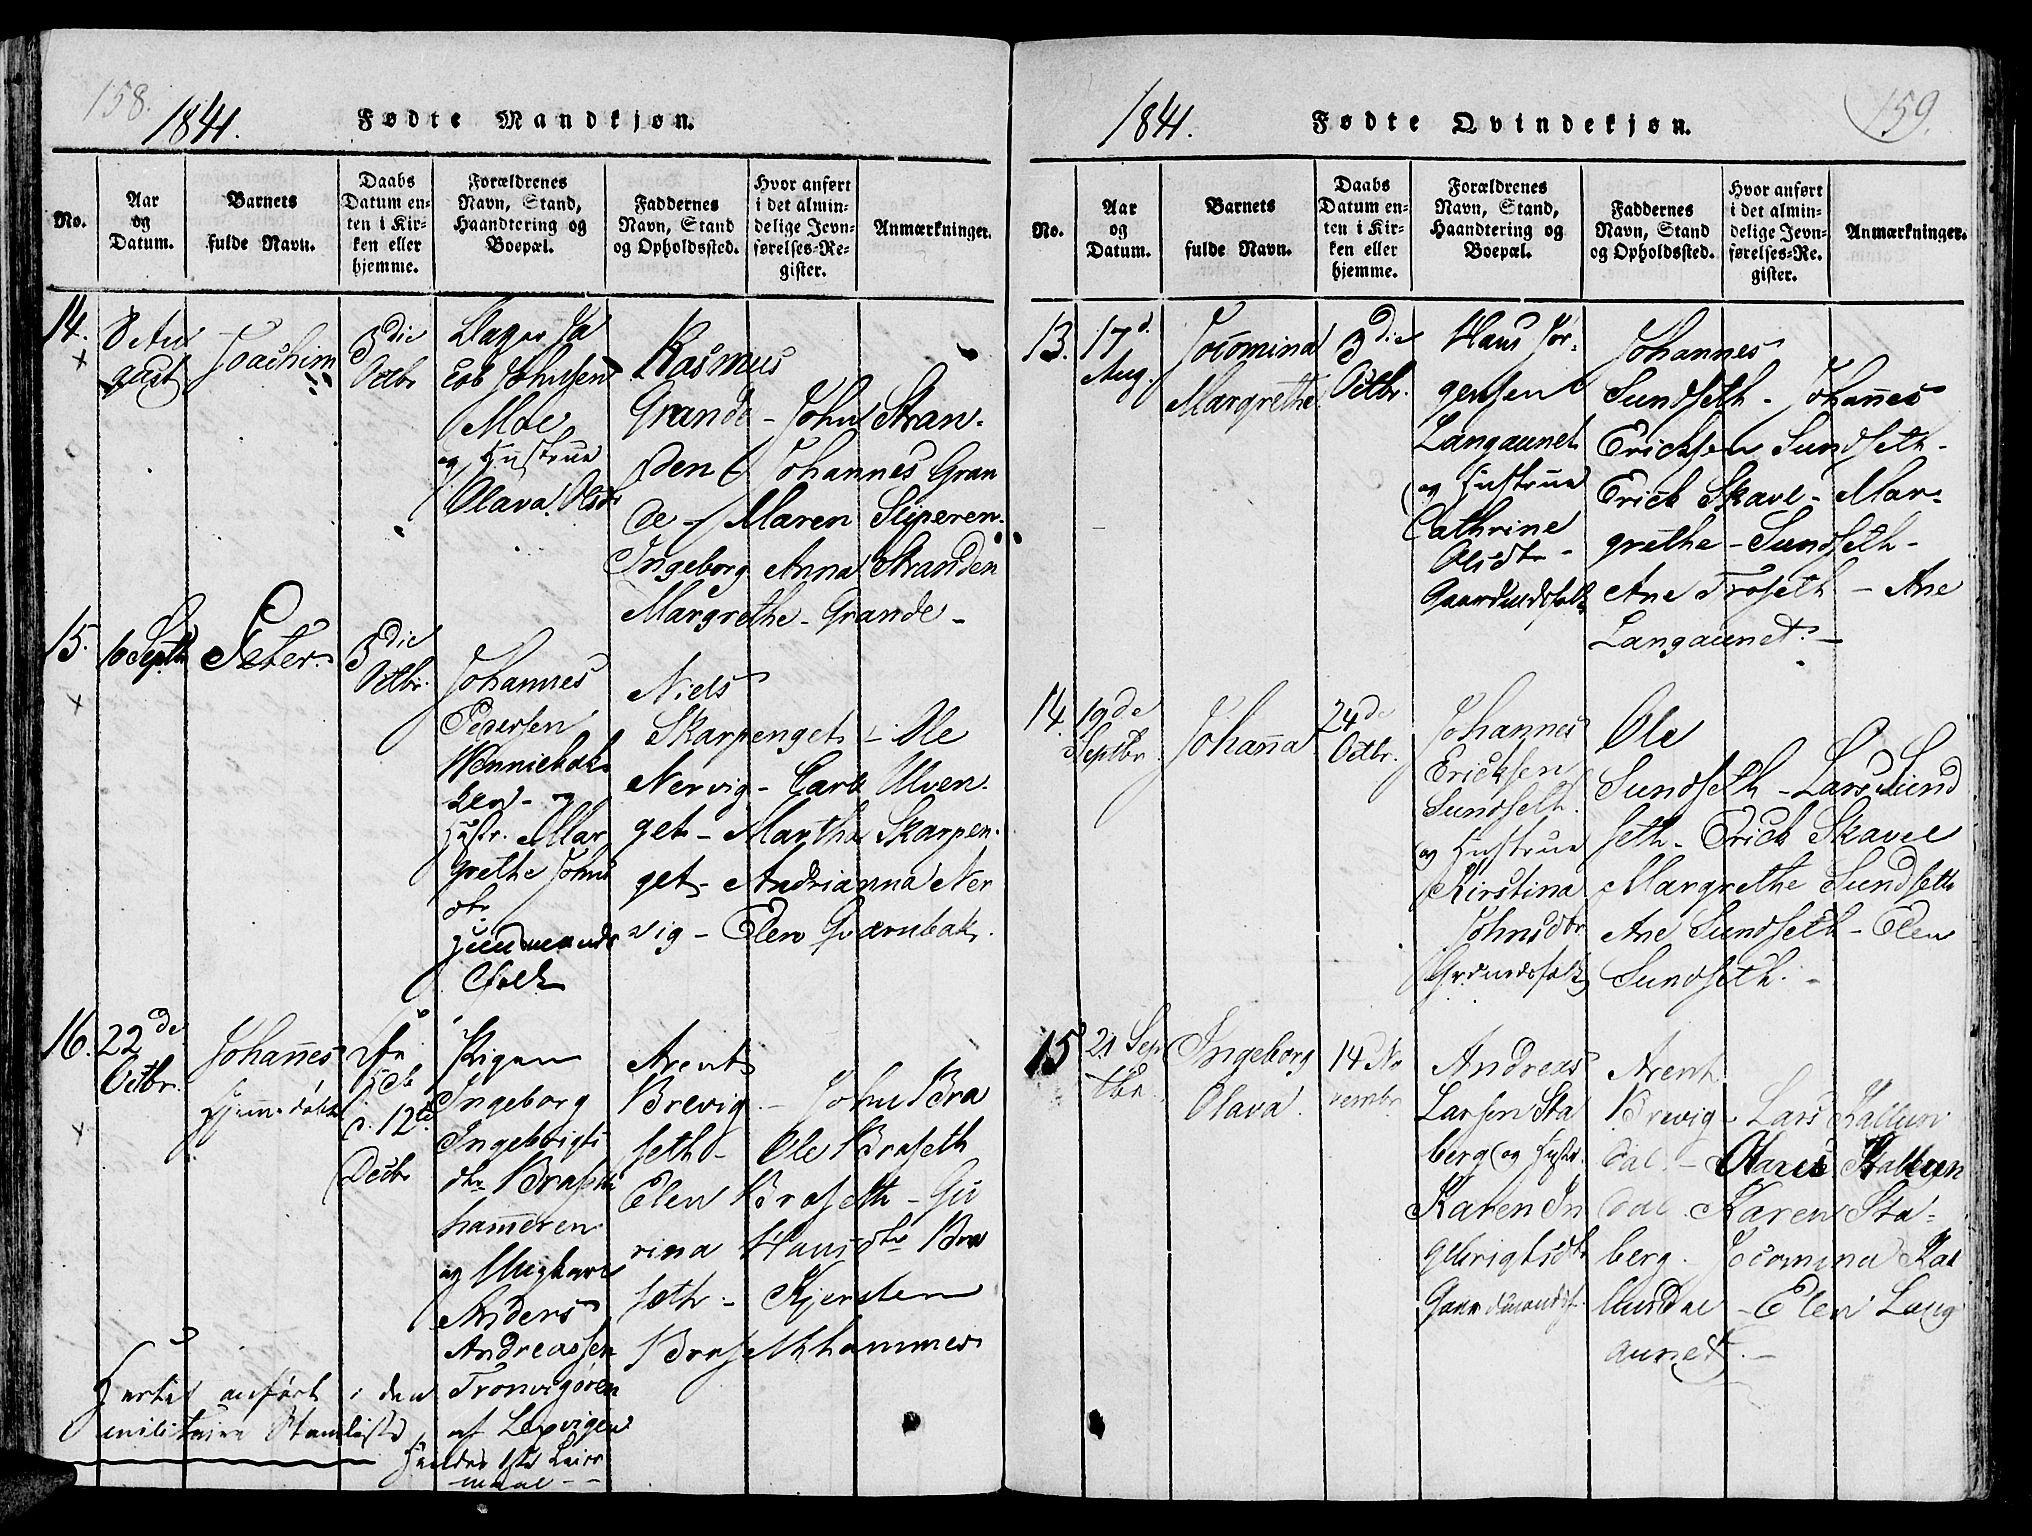 158.
1841.
Fødte Mandkjøn.
No.
Aar
og
Datum.
Barnets
fulde Navn.
Daabs
Datum en-
ten i Kir-
ken eller
hjemme.
Forældrenes
Navn, Stand,
Haandtering og
Boepæl.
Faddernes
Navn, Stand
og Opholdssted.
Hvor anført
i det almin-
delige Jevn-
førelses-Re-
gister.
Anmærkninger.
14.
8 Au
gust
Joachim
3die
Octbr
Ja
cob Johnsen
Moe
og Hustrue
Olava Olsdr
Rasmus
Grande - John Stran-
den - Johannes Gran
de - Maren Sliperen-
Ingeborg Anna Stranden
Margrethe Grande -
15.
16 Septbr
Peter.
3die
Octbr.
Johannes
Pedersen
Wenniebak-
ken - og
Hustr. Mar
grethe Johns
dtr
Huusmands
folk
Niels
Skarpenget - Ole
Nervig - Carl Ulven-
get - Martha Skarpen-
get - Andrianna Ner
vig - Elen Qværnbak.
16.
22de
Octbr.
Johannes
Hjemmedøbt
i
Kirke
d. 12te
Decbr
Pigen
Ingeborg
Ingebrigts
dtr Braseth
hammeren
og Ungkarl
Anders
Andreassen
Tronvigøren
af Lexvigen
Hendes 1ste Leier
maal -
Arent
Brevig - John Bra
seth - Ole Braseth
Elen Braseth - Gu
rina Hansdtr Bra
seth - Kjersten
Brasethhammer
anført i den
militaire Stamliste
159.
1841.
Fødte Qvindekjøn.
No.
Aar
og
Datum.
Barnets
fulde Navn.
Daabs
Datum en-
ten i Kir-
ken eller
hjemme.
Forældrenes
Navn, Stand,
Haandtering og
Boepæl.
Faddernes
Navn, Stand
og Opholdssted.
Hvor anført
i det almin-
delige Jevn-
førelses-Re-
gister.
Anmærkninger.
13.
17d.
Aug.
Jocomina
Margrethe
3die
Octbr.
Hans Jør-
gensen
Langaunet
og Hustrue
Cathrine
Olsdtr -
Gaardmdsfolk
Johannes
Sundseth - Johan̄es
Ericksen Sundseth -
Erick Skavl - Mar-
grethe - Sundseth -
Ane Troseth - Ane
Langaunet. -
14.
19de
Septbr.
Johan̄a
24de
Octbr.
Johannes
Ericksen
Sundseth.
og Hustrue
Kirstina
Johnsdtr
Grdmdsfolk
Ole
Sundseth - Lars Sund
seth - Erick Skavl
Margrethe Sundseth
Ane Sundseth - Elen
Sundseth. -
15
21 Sep
tbr.
Ingeborg
Olava.
14 No
vembr.
Andreas
Larsen Sta
berg og Hustr.
Karen In
gebrigtsdtr
Gaardmandsf.
Arent
Brevig - Lars Kallun
dal. - Olaus Kallun
dal. Karen Sta-
berg. Jocomina Kal
lundal - Elen Lang
aunet. -